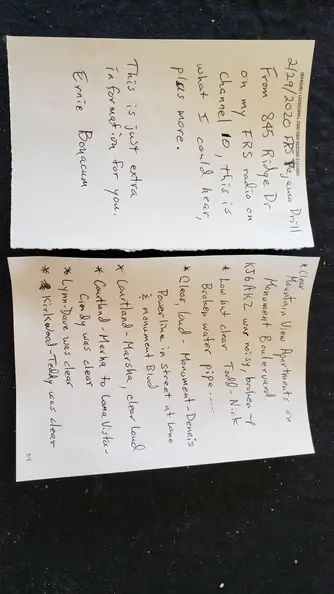 2/29/2020 FRS Pajama Drill
From 845 Ridge Dr
on my FRS radio on
Channel 10, this is
what I could hear,
plus more.
This is just extra
information for you.
Ernie Bonacum
* Clear
Mountain View Apartments on
Monument Boulevard
KJ6AKZ was noisy, broken up
* Low but clear Todd - Nick
Broken water pipe......
* Clear, loud - Monument - Dennis
Power line in street at Lane
& monument Blvd
* Courtland - Marsha, clear loud
* Courtland - Marka to Loma Vista -
Cindy was clear
* Lynn - Dave was clear
* Kirkwood - Teddy was clear